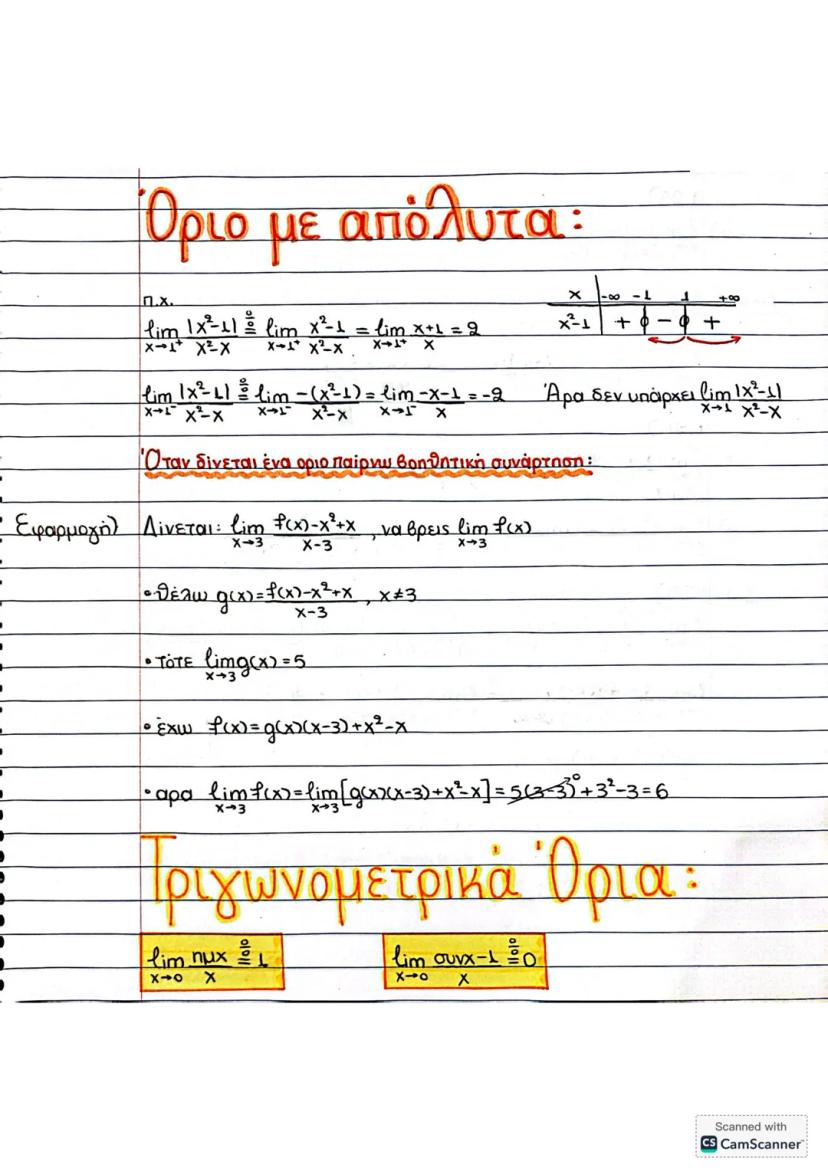 Όριο με απόλυτα:
π.χ.
lim x→1⁺ |x²-1|/x²-x =(0/0) lim x→1⁺ x²-1/x²-x = lim x→1⁺ x+1/x = 2
x | -∞ -1 1 +∞
x²-1 | + ϕ - ϕ +
lim x→1⁻ |x²-1|/x²-x =(0/0) lim x→1⁻ -(x²-1)/x²-x = lim x→1⁻ -x-1/x = -2 Άρα δεν υπάρχει lim x→1 |x²-1|/x²-x
Όταν δίνεται ένα οριο παίρνω βοηθητική συνάρτηση:
Εφαρμογή) Δίνεται: lim x→3 f(x)-x²+x/x-3 , να βρεις lim x→3 f(x)
• θέλω g(x)= f(x)-x²+x/x-3 , x≠3
• τότε lim x→3 g(x) = 5
• έχω f(x)=g(x)(x-3)+x²-x
• αρα lim x→3 f(x)=lim x→3 [g(x)(x-3)+x²-x] = 5(3-3)⁰+3²-3=6
Τριγωνομετρικά Όρια:
lim x→0 ημx/x =(0/0) 1 lim x→0 συνx-1/x =(0/0) 0
Scanned with
CS CamScanner